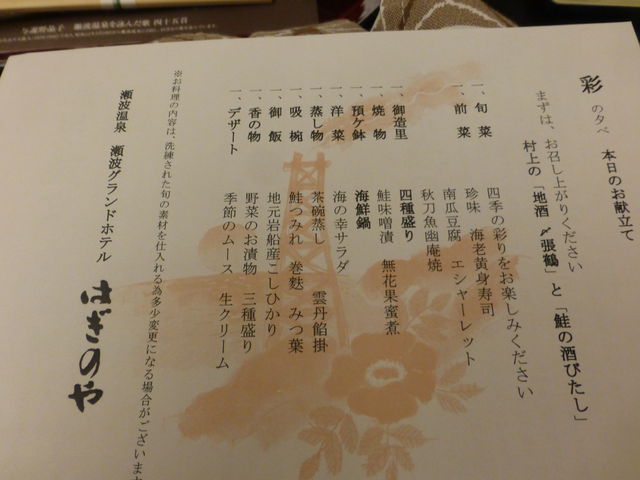 彩 の夕べ 本日のお献立て
まずは、お召し上がりください
村上の「地酒 〆張鶴」と「鮭の酒びたし」
一、旬菜 四季の彩りをお楽しみください
一、前菜 珍味 海老黄身寿司
南瓜豆腐 エシャーレット
秋刀魚幽庵焼
一、御造里 四種盛り
一、焼物 鮭味噌漬 無花果蜜煮
一、預ケ鉢 海鮮鍋
一、洋菜 海の幸サラダ
一、蒸し物 茶碗蒸し 雲丹餡掛
一、吸椀 鮭つみれ 巻麩 みつ葉
一、御飯 地元岩船産こしひかり
一、香の物 野菜のお漬物 三種盛り
一、デザート 季節のムース 生クリーム
※お料理の内容は、洗練された旬の素材を仕入れる為多少変更になる場合がございます
瀬波温泉 瀬波グランドホテル はぎのや
与謝野晶子 瀬波温泉を詠んだ歌 四十五首